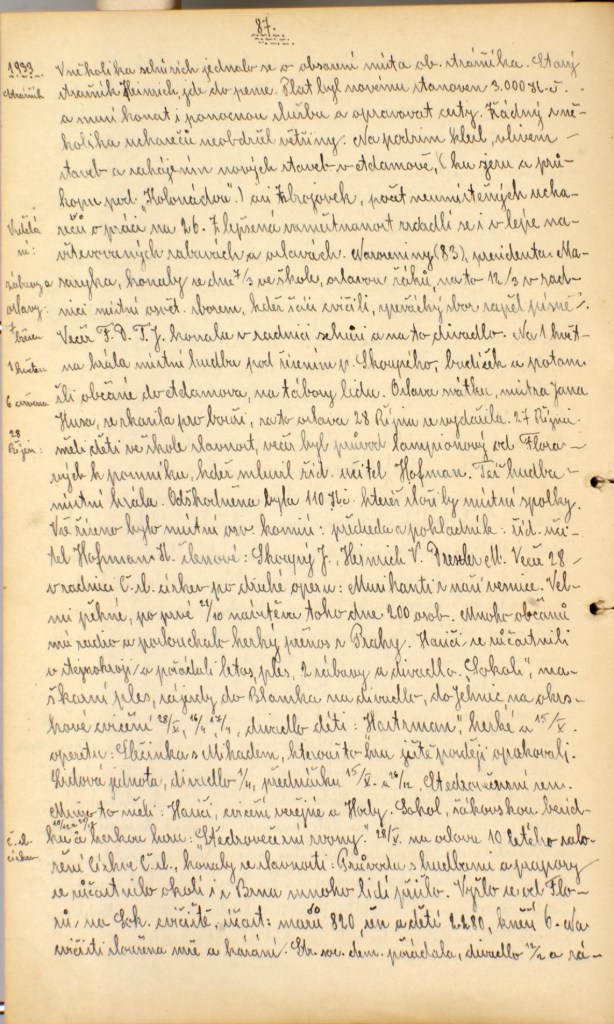 87.
1933
V několika schůzích jednalo se o obsazení místa ob. strážníka. Starý
strážník
strážník Heinrich, jde do pense. Plat byl novému stanoven 3.000 Kč.
a musí konat i ponocnou službu a opravovat cesty. Žádný z ně-
kolika uchazečů neobdržel většiny. Na podzim klesl, vlivem
staveb a zahájením nových staveb v Adamově, (ku jezu a prů-
kopu pod "Kolonádou".) ani Zbrojovek, počet neumístěných ucha-
zečů o práci na 26. Zlepšená zaměstnanost zrcadlí se i v lépe na-
vštěvovaných zábavách a oslavách. Narozeniny (83), presidenta Ma-
zábavy a
oslavy:
saryka, konaly se dne 7/3 ve škole, oslavou žáků, na to 12/3 v rad-
nici místní osvět. sborem, kdež žáci cvičili, pěvecký sbor zapěl písně.
březen
Večer F. D. T. J. konala v radnici schůzi a na to divadlo. Na 1 květ-
1 květen
na hrála místní hudba pod řízením p. Skoupého, budíček a potom
šli občané do Adamova, na tábory lidu. Oslava svátku, mistra Jana
6 července
Husa, se zkazila pro bouři, za to oslava 28 Října se vydařila. 27 Října
28
Říjen:
měli děti ve škole slavnost, večer byl průvod lampionový od Flora-
vých k pomníku, kdež mluvil říd. učitel Hofman. Též hudba
místní hrála. Odškodněna byla 110 Kč. kteréž složily místní spolky.
Vše řízeno bylo místní osv. komisí: předseda a pokladník: říd. uči-
tel Hofman K. členové: Skoupý J., Heinrich V. Drexler M. Večer 28
v radnici Č. sl. církev po druhé operu: Musikanti z naší vesnice. Vel-
mi pěkné, po prvé 21/10 návštěva toho dne 200 osob. Mnoho občanů
má radio a poslouchalo hezký přenos z Prahy. Hasiči se zúčastnili
v stejnokroji a pořádali letos, ples, 2 zábavy a divadlo. "Sokoli", ma-
škarní ples, zájezdy do Blanska na divadlo, do Jehnic, na okrs-
kové cvičení 28/V, divadlo dětí: "Hastrman", hezké a 15/X.
operetu: Slečinka s Mikadem, kteroužto hru ještě později opakovali.
Lidová jednota, divadlo přednášku 15/X. a 26/12,
Mimo to měli: Hasiči, cvičení veřejné a Hody. Sokol, žákovskou besíd-
ku a hezkou hru: "Štědrovečerní zvony." 28/V. na oslavu 10 letého zalo-
č. sl.
církev
žení Církve Č. sl., konaly se slavnosti: Průvodu s hudbami a prapory
se zúčastnilo okolí i z Brna mnoho lidí přišlo. Vyšlo se od Flo-
rů, na Sok. cvičiště, účast: mužů 820, žen a dětí 2280, kněží 6. Na
cvičišti sloužena mše a kázání. Str. soc. dem. pořádala, divadlo 12/2 a zá-